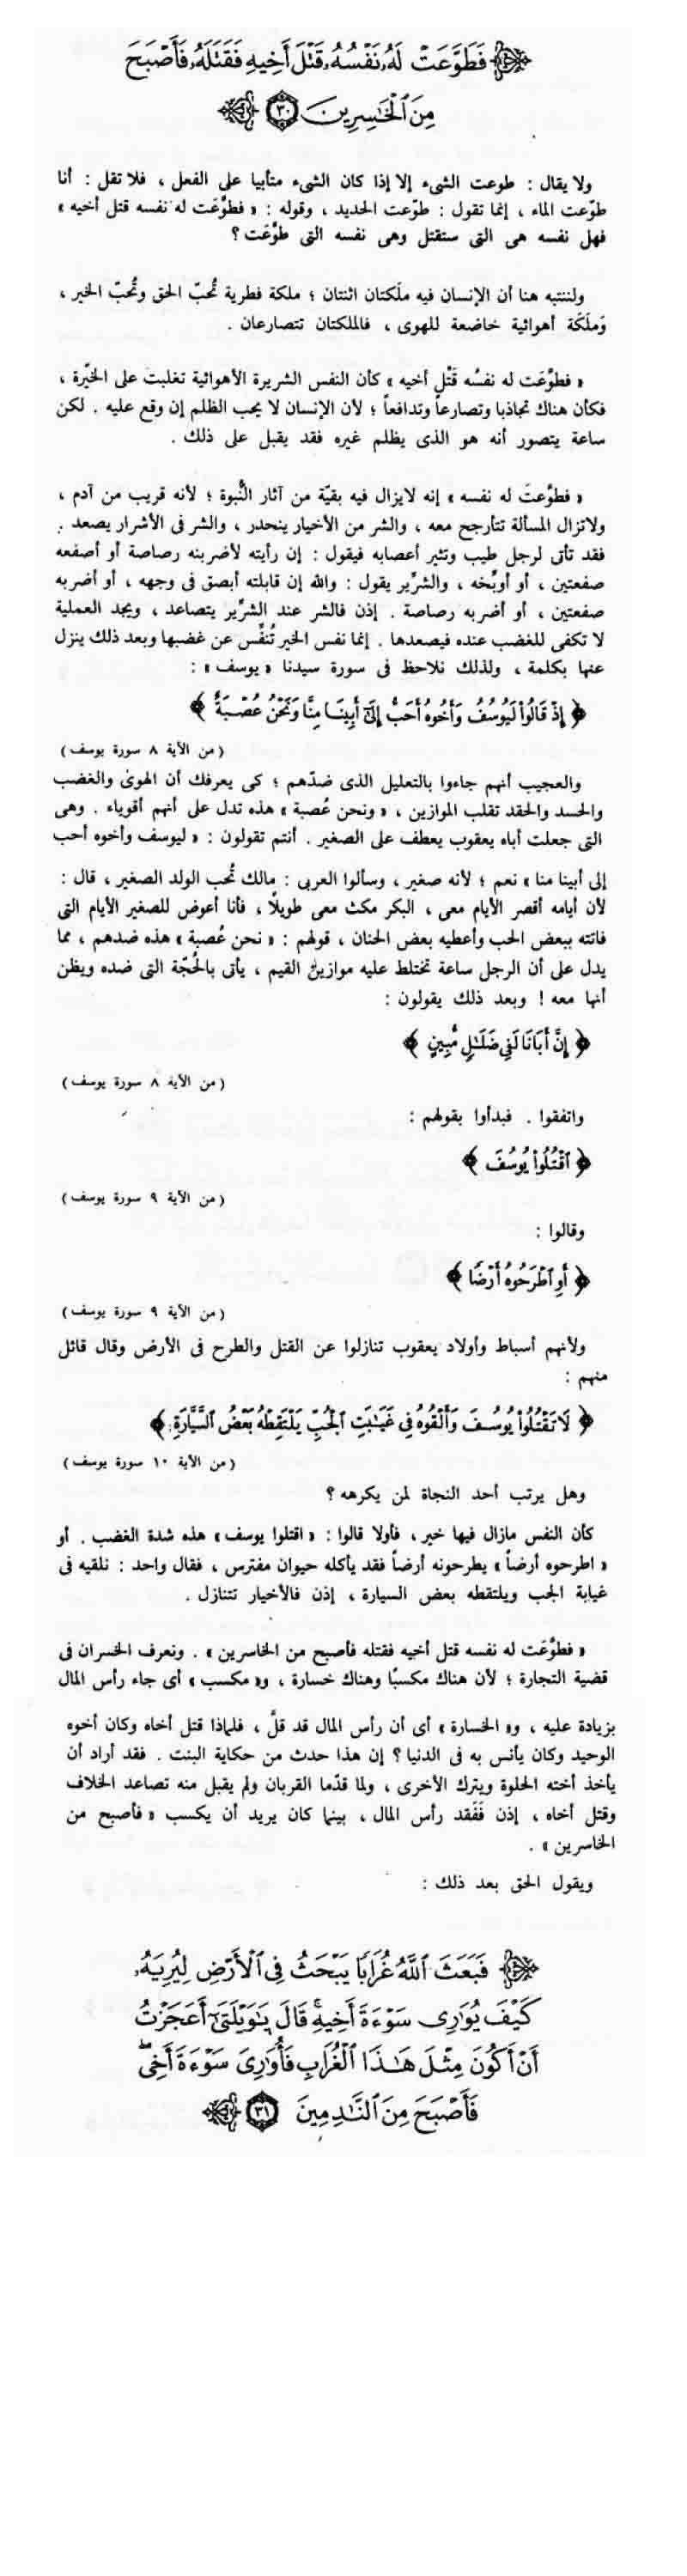 فَطَوَّعَتْ لَهُۥ نَفْسُهُۥ قَتْلَ أَخِيهِ فَقَتَلَهُۥ فَأَصْبَحَ
مِنَ ٱلْخَٰسِرِينَ ٣٠
ولا يقال : طوعت الشىء إلا إذا كان الشىء متأبيا على الفعل ، فلا تقل : أنا
طوّعت الماء ، إنما تقول : طوّعت الحديد ، وقوله : « فطوَّعَت له نفسه قتل أخيه »
فهل نفسه هى التى ستقتل وهى نفسه التى طوَّعَت ؟
ولننتبه هنا أن الإنسان فيه ملَكتان اثنتان ؛ ملكة فطرية تُحبّ الحق وتُحبّ الخير ،
وَملَكَة أهوائية خاضعة للهوى ، فالملكتان تتصارعان .
« فطوَّعَت له نفسُه قَتْل أخيه » كأن النفس الشريرة الأهوائية تغلبت على الخيّرة ،
فكأن هناك تجاذبا وتصارعاً وتدافعاً ؛ لأن الإنسان لا يحب الظلم إن وقع عليه . لكن
ساعة يتصور أنه هو الذى يظلم غيره فقد يقبل على ذلك .
« فطوَّعتَ له نفسه » إنه لايزال فيه بقيّة من آثار النُّبوة ؛ لأنه قريب من آدم ،
ولاتزال المسألة تتأرجح معه ، والشر من الأخيار ينحدر ، والشر فى الأشرار يصعد .
فقد تأتى لرجل طيب وتثير أعصابه فيقول : إن رأيته لأضربنه رصاصة أو أصفعه
صفعتين ، أو أوبِّخه ، والشرِّير يقول : والله إن قابلته أبصق فى وجهه ، أو أضربه
صفعتين ، أو أضربه رصاصة . إذن فالشر عند الشرِّير يتصاعد ، ويجد العملية
لا تكفى للغضب عنده فيصعدها . إنما نفس الخير تُنفِّس عن غضبها وبعد ذلك ينزل
عنها بكلمة ، ولذلك نلاحظ فى سورة سيدنا « يوسف » :
﴿ إِذْ قَالُوا۟ لَيُوسُفُ وَأَخُوهُ أَحَبُّ إِلَىٰٓ أَبِينَا مِنَّا وَنَحْنُ عُصْبَةٌ ﴾
( من الآية ٨ سورة يوسف )
والعجيب أنهم جاءوا بالتعليل الذى ضدّهم ؛ كى يعرفك أن الهوى والغضب
والحسد والحقد تقلب الموازين ، « ونحن عُصبة » هذه تدل على أنهم أقوياء . وهى
التى جعلت أباه يعقوب يعطف على الصغير . أنتم تقولون : « ليوسف وأخوه أحب
إلى أبينا منا » نعم ؛ لأنه صغير ، وسألوا العربى : مالك تُحب الولد الصغير ، قال :
لأن أيامه أقصر الأيام معى ، البكر مكث معى طويلًا ، فأنا أعوض للصغير الأيام التى
فاتته ببعض الحب وأعطيه بعض الحنان ، قولهم : « نحن عُصبة » هذه ضدهم ، مما
يدل على أن الرجل ساعة تختلط عليه موازين القيم ، يأتى بالحُجّة التى ضده ويظن
أنها معه ! وبعد ذلك يقولون :
﴿ إِنَّ أَبَانَا لَفِى ضَلَٰلٍ مُّبِينٍ ﴾
( من الآية ٨ سورة يوسف )
واتفقوا . فبدأوا بقولهم :
﴿ ٱقْتُلُوا۟ يُوسُفَ ﴾
( من الآية ٩ سورة يوسف )
وقالوا :
﴿ أَوِ ٱطْرَحُوهُ أَرْضًا ﴾
( من الآية ٩ سورة يوسف )
ولأنهم أسباط وأولاد يعقوب تنازلوا عن القتل والطرح فى الأرض وقال قائل
منهم :
﴿ لَا تَقْتُلُوا۟ يُوسُفَ وَأَلْقُوهُ فِى غَيَٰبَتِ ٱلْجُبِّ يَلْتَقِطْهُ بَعْضُ ٱلسَّيَّارَةِ ﴾
( من الآية ١٠ سورة يوسف )
وهل يرتب أحد النجاة لمن يكرهه ؟
كأن النفس مازال فيها خير ، فأولا قالوا : « اقتلوا يوسف » هذه شدة الغضب . أو
« اطرحوه أرضاً » يطرحونه أرضاً فقد يأكله حيوان مفترس ، فقال واحد : نلقيه فى
غيابة الجب ويلتقطه بعض السيارة ، إذن فالأخيار تتنازل .
« فطوَّعَت له نفسه قتل أخيه فقتله فأصبح من الخاسرين » . ونعرف الخسران فى
قضية التجارة ؛ لأن هناك مكسبًا وهناك خسارة ، و« مكسب » أى جاء رأس المال
بزيادة عليه ، و« الخسارة » أى أن رأس المال قد قلَّ ، فلماذا قتل أخاه وكان أخوه
الوحيد وكان يأنس به فى الدنيا ؟ إن هذا حدث من حكاية البنت . فقد أراد أن
يأخذ أخته الحلوة ويترك الأخرى ، ولما قدّما القربان ولم يقبل منه تصاعد الخلاف
وقتل أخاه ، إذن فَفَقد رأس المال ، بينما كان يريد أن يكسب « فأصبح من
الخاسرين » .
ويقول الحق بعد ذلك :
فَبَعَثَ ٱللَّهُ غُرَابًا يَبْحَثُ فِى ٱلْأَرْضِ لِيُرِيَهُۥ
كَيْفَ يُوَٰرِى سَوْءَةَ أَخِيهِ ۚ قَالَ يَٰوَيْلَتَىٰٓ أَعَجَزْتُ
أَنْ أَكُونَ مِثْلَ هَٰذَا ٱلْغُرَابِ فَأُوَٰرِىَ سَوْءَةَ أَخِى ۖ
فَأَصْبَحَ مِنَ ٱلنَّٰدِمِينَ ٣١